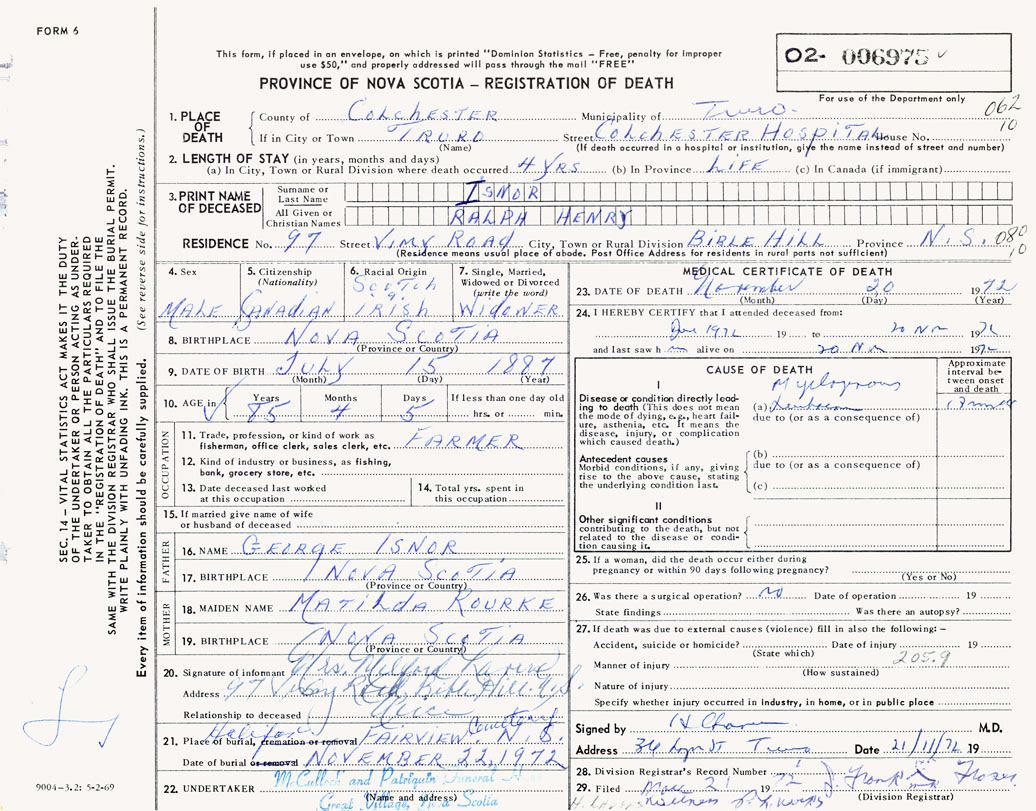 FORM 6
This form, if placed in an envelope, on which is printed "Dominion Statistics – Free, penalty for improper
use $50," and properly addressed will pass through the mail "FREE"
02- 006975
PROVINCE OF NOVA SCOTIA – REGISTRATION OF DEATH
For use of the Department only
062
10
1. PLACE OF DEATH
County of COLCHESTER Municipality of Truro
If in City or Town TRURO Street COLCHESTER HOSPITAL House No.
(Name) (If death occurred in a hospital or institution, give the name instead of street and number)
2. LENGTH OF STAY (in years, months and days)
(a) In City, Town or Rural Division where death occurred 4 YRS (b) In Province LIFE (c) In Canada (if immigrant)
3. PRINT NAME OF DECEASED
Surname or Last Name ISNOR
All Given or Christian Names RALPH HENRY
RESIDENCE No. 97 Street VIMY ROAD City, Town or Rural Division BIBLE HILL Province N.S. 080
10
(Residence means usual place of abode. Post Office Address for residents in rural parts not sufficient)
4. Sex
MALE
5. Citizenship
(Nationality)
CANADIAN
6. Racial Origin
SCOTCH
IRISH
7. Single, Married,
Widowed or Divorced
(write the word)
WIDOWER
8. BIRTHPLACE NOVA SCOTIA
(Province or Country)
9. DATE OF BIRTH JULY 15 1887
(Month) (Day) (Year)
10. AGE in
Years Months Days If less than one day old
85 4 5 hrs. or min.
OCCUPATION
11. Trade, profession, or kind of work as
fisherman, office clerk, sales clerk, etc. FARMER
12. Kind of industry or business, as fishing,
bank, grocery store, etc.
13. Date deceased last worked
at this occupation
14. Total yrs. spent in
this occupation
15. If married give name of wife
or husband of deceased
FATHER
16. NAME GEORGE ISNOR
17. BIRTHPLACE NOVA SCOTIA
(Province or Country)
MOTHER
18. MAIDEN NAME MATILDA ROURKE
19. BIRTHPLACE NOVA SCOTIA
(Province or Country)
20. Signature of informant Mrs. Milford
Address 97 Vimy Road, Bible Hill, N.S.
Relationship to deceased Niece
21. Place of burial, cremation or removal Halifax FAIRVIEW Cemetery N.S.
Date of burial or removal NOVEMBER 22, 1972
22. UNDERTAKER McCulloch and Patriquin Funeral
(Name and address)
Great Village, Nova Scotia
MEDICAL CERTIFICATE OF DEATH
23. DATE OF DEATH November 20 1972
(Month) (Day) (Year)
24. I HEREBY CERTIFY that I attended deceased from:
1972 19 to 20 Nov 1972
and last saw him alive on 20 Nov 1972
CAUSE OF DEATH
Approximate
interval be-
tween onset
and death
I
Disease or condition directly lead-
ing to death (This does not mean
the mode of dying, e.g., heart fail-
ure, asthenia, etc. It means the
disease, injury, or complication
which caused death.)
Myelogenous
(a) Leukaemia
due to (or as a consequence of)
Antecedent causes
Morbid conditions, if any, giving
rise to the above cause, stating
the underlying condition last.
(b)
due to (or as a consequence of)
(c)
II
Other significant conditions
contributing to the death, but not
related to the disease or condi-
tion causing it.
25. If a woman, did the death occur either during
pregnancy or within 90 days following pregnancy?
(Yes or No)
26. Was there a surgical operation? no Date of operation 19
State findings Was there an autopsy?
27. If death was due to external causes (violence) fill in also the following: –
Accident, suicide or homicide? Date of injury 19
(State which) 205.9
Manner of injury
(How sustained)
Nature of injury
Specify whether injury occurred in industry, in home, or in public place
Signed by M.D.
Address Truro Date 21/11/72 19
28. Division Registrar's Record Number
29. Filed 21 1972
(Division Registrar)
SEC. 14 – VITAL STATISTICS ACT MAKES IT THE DUTY
OF THE UNDERTAKER OR PERSON ACTING AS UNDER-
TAKER TO OBTAIN ALL THE PARTICULARS REQUIRED
IN THE "REGISTRATION OF DEATH" AND TO FILE THE
SAME WITH THE DIVISION REGISTRAR WHO SHALL ISSUE THE BURIAL PERMIT.
WRITE PLAINLY WITH UNFADING INK. THIS IS A PERMANENT RECORD.
Every item of information should be carefully supplied. (See reverse side for instructions.)
9004-3.2: 5-2-69